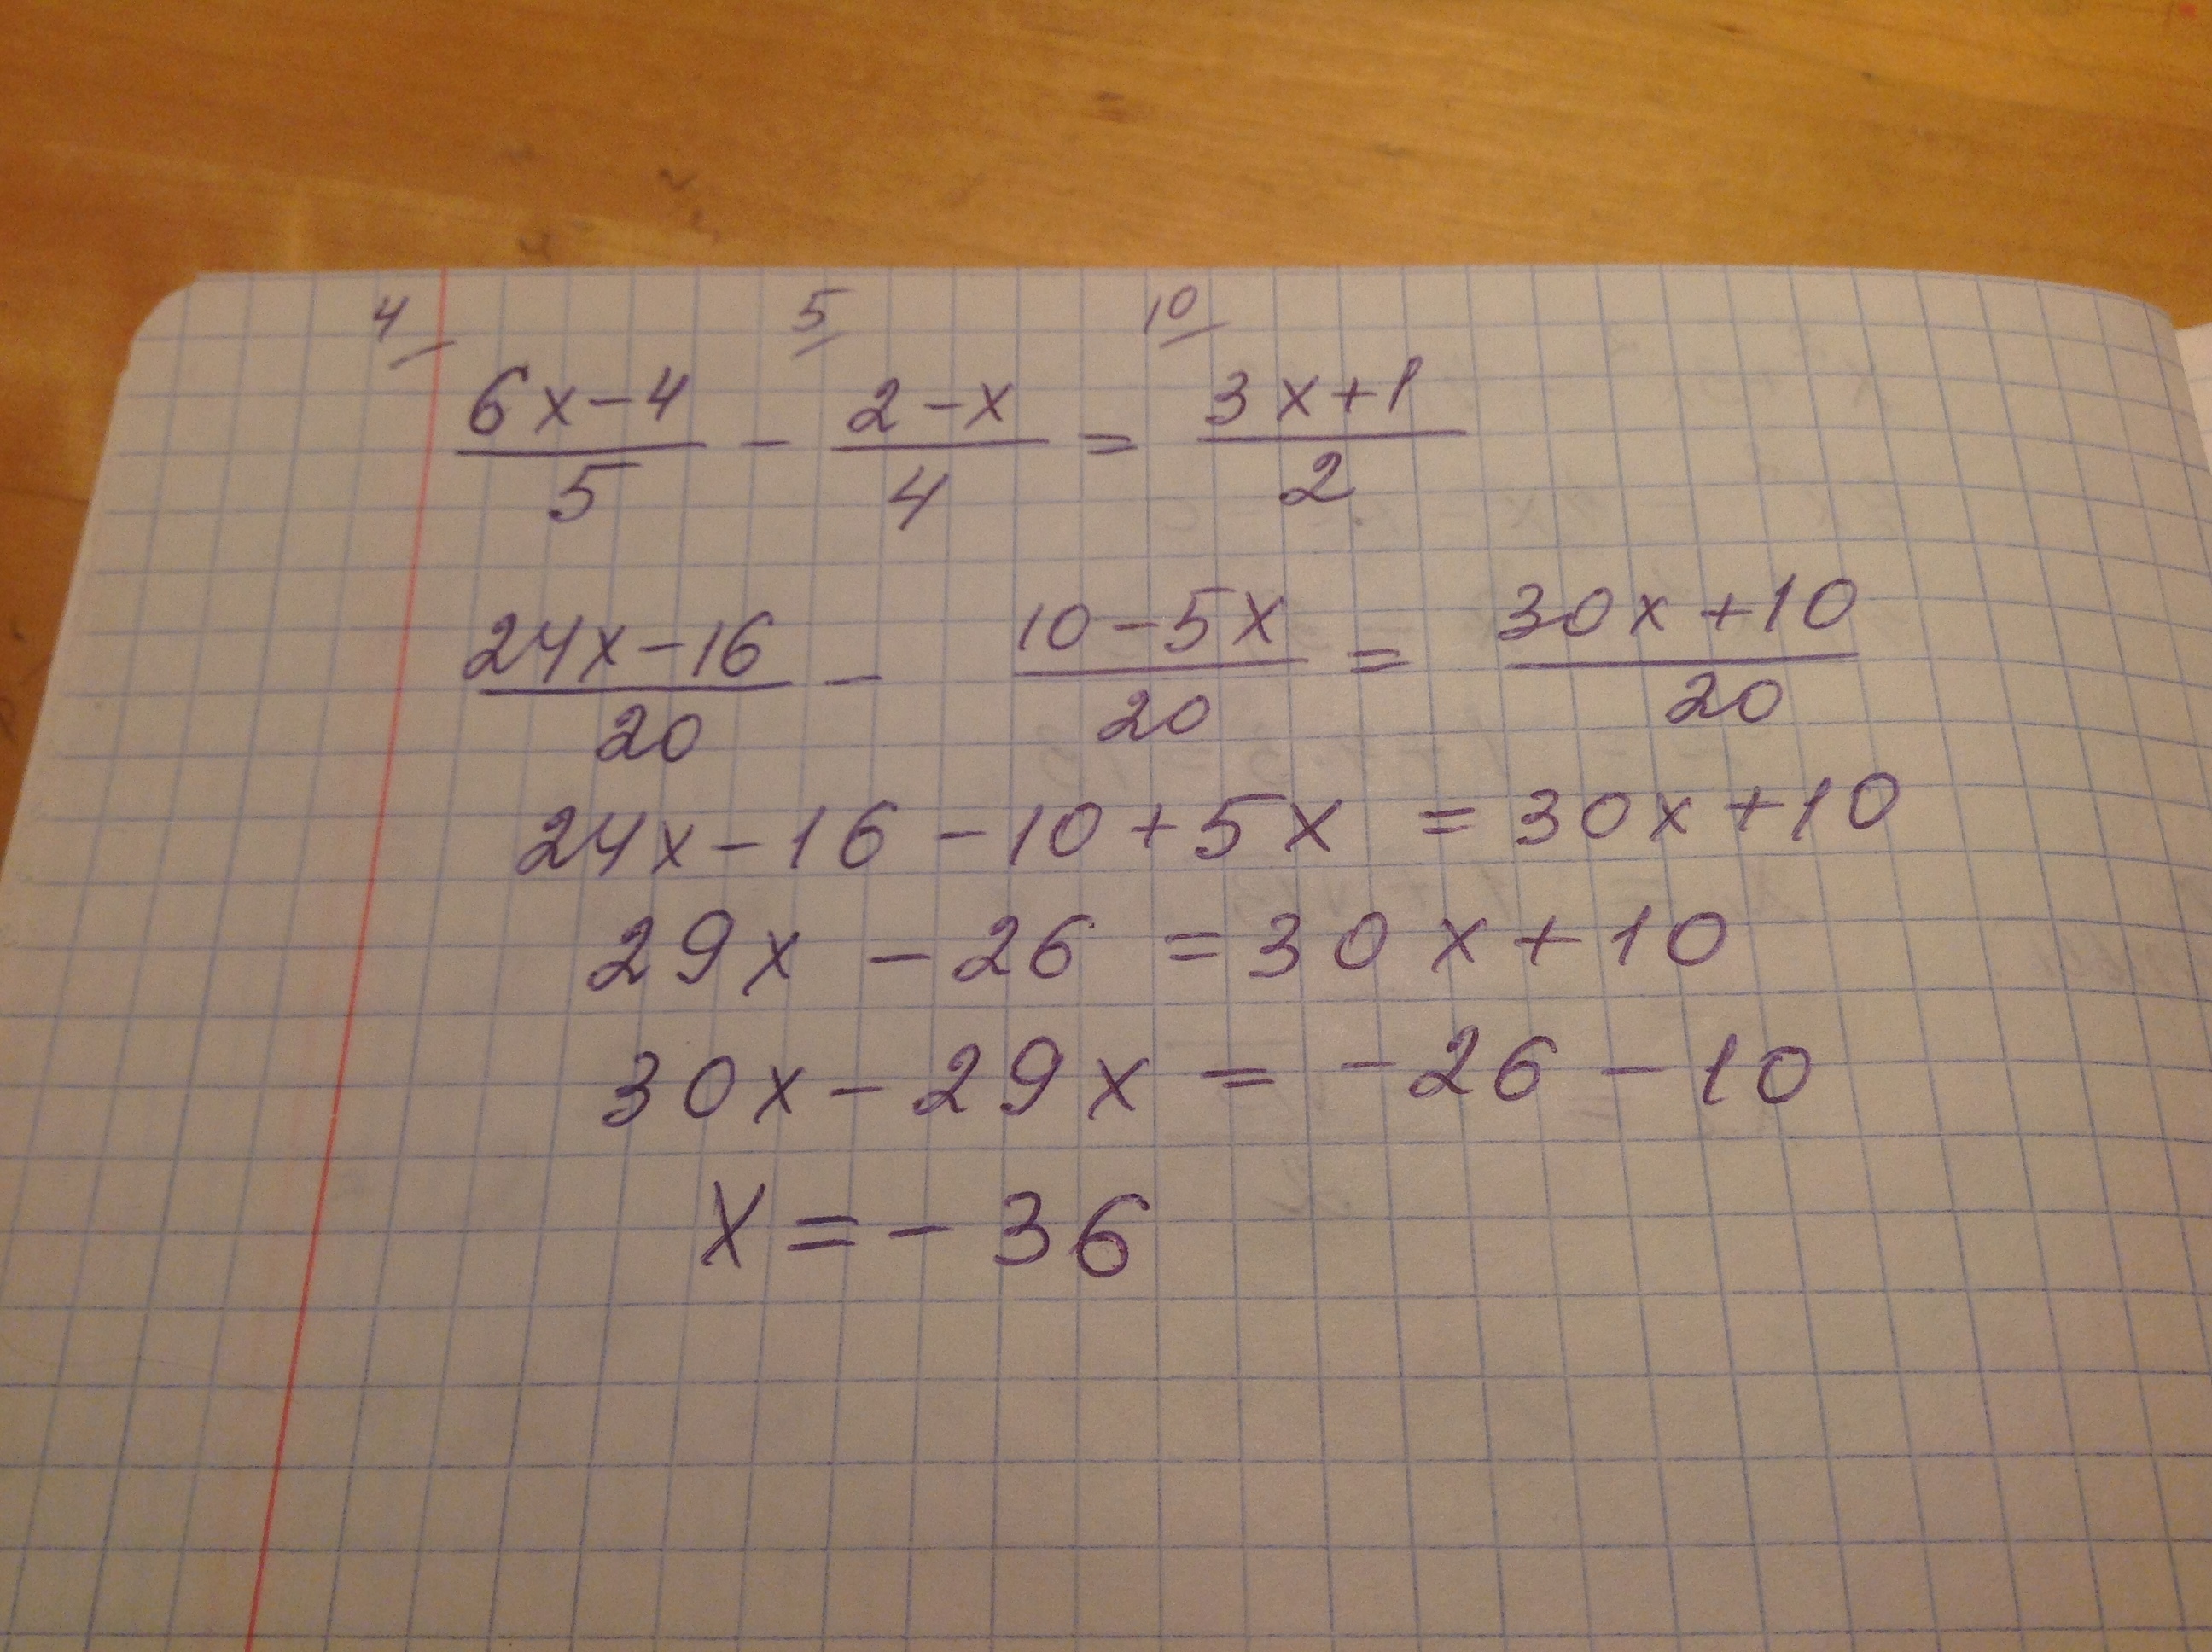 4/ 5/ 10/
6x-4/5 - 2-x/4 = 3x+1/2
24x-16/20 - 10-5x/20 = 30x+10/20
24x-16-10+5x = 30x+10
29x - 26 = 30x+10
30x-29x = -26-10
x=-36